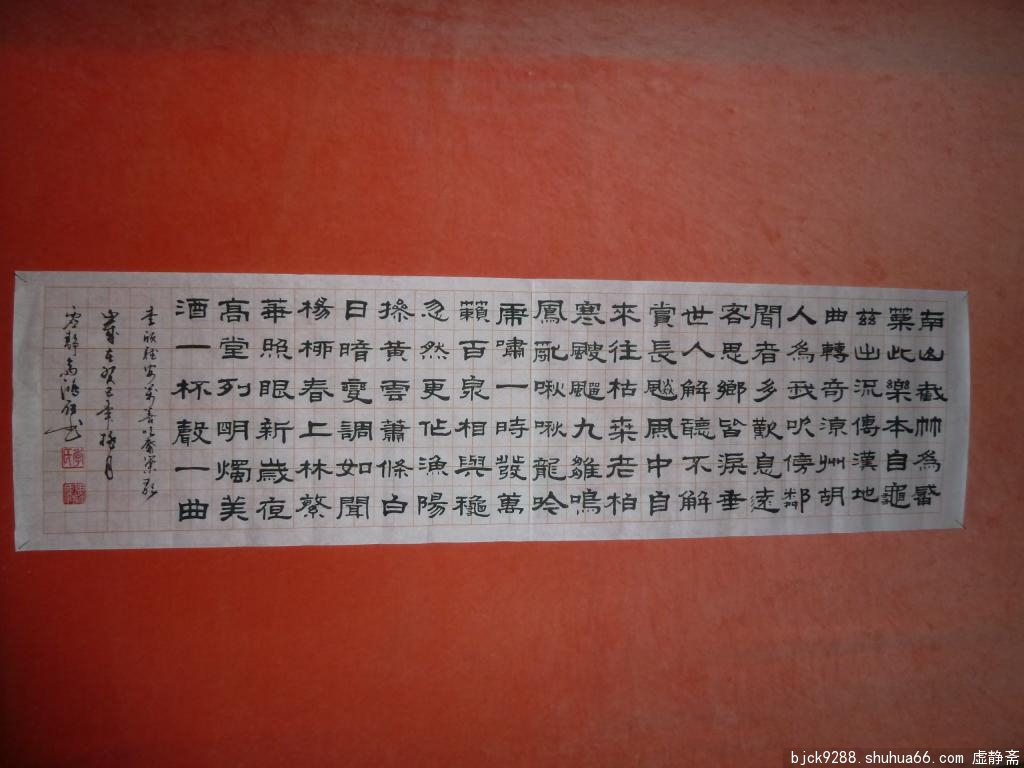 南山截竹為觱
篥此樂本自龜
茲出流傳漢地
曲轉奇涼州胡
人為我吹傍鄰
聞者多歎息遠
客思鄉皆淚垂
世人解聽不解
賞長飈風中自
來往枯桒老柏
寒颼飀九雛鳴
鳳亂啾啾龍吟
虎嘯一時發萬
籟百泉相與穐
忽然更作漁陽
操黃雲蕭條白
日暗變調如聞
楊柳春上林繁
華照眼新歲夜
高堂列明燭美
酒一杯聲一曲
李頎聽安萬善吹觱篥歌
歲在癸巳年梅月
虛靜
bjck9288.shuhua66.com 虚静斋